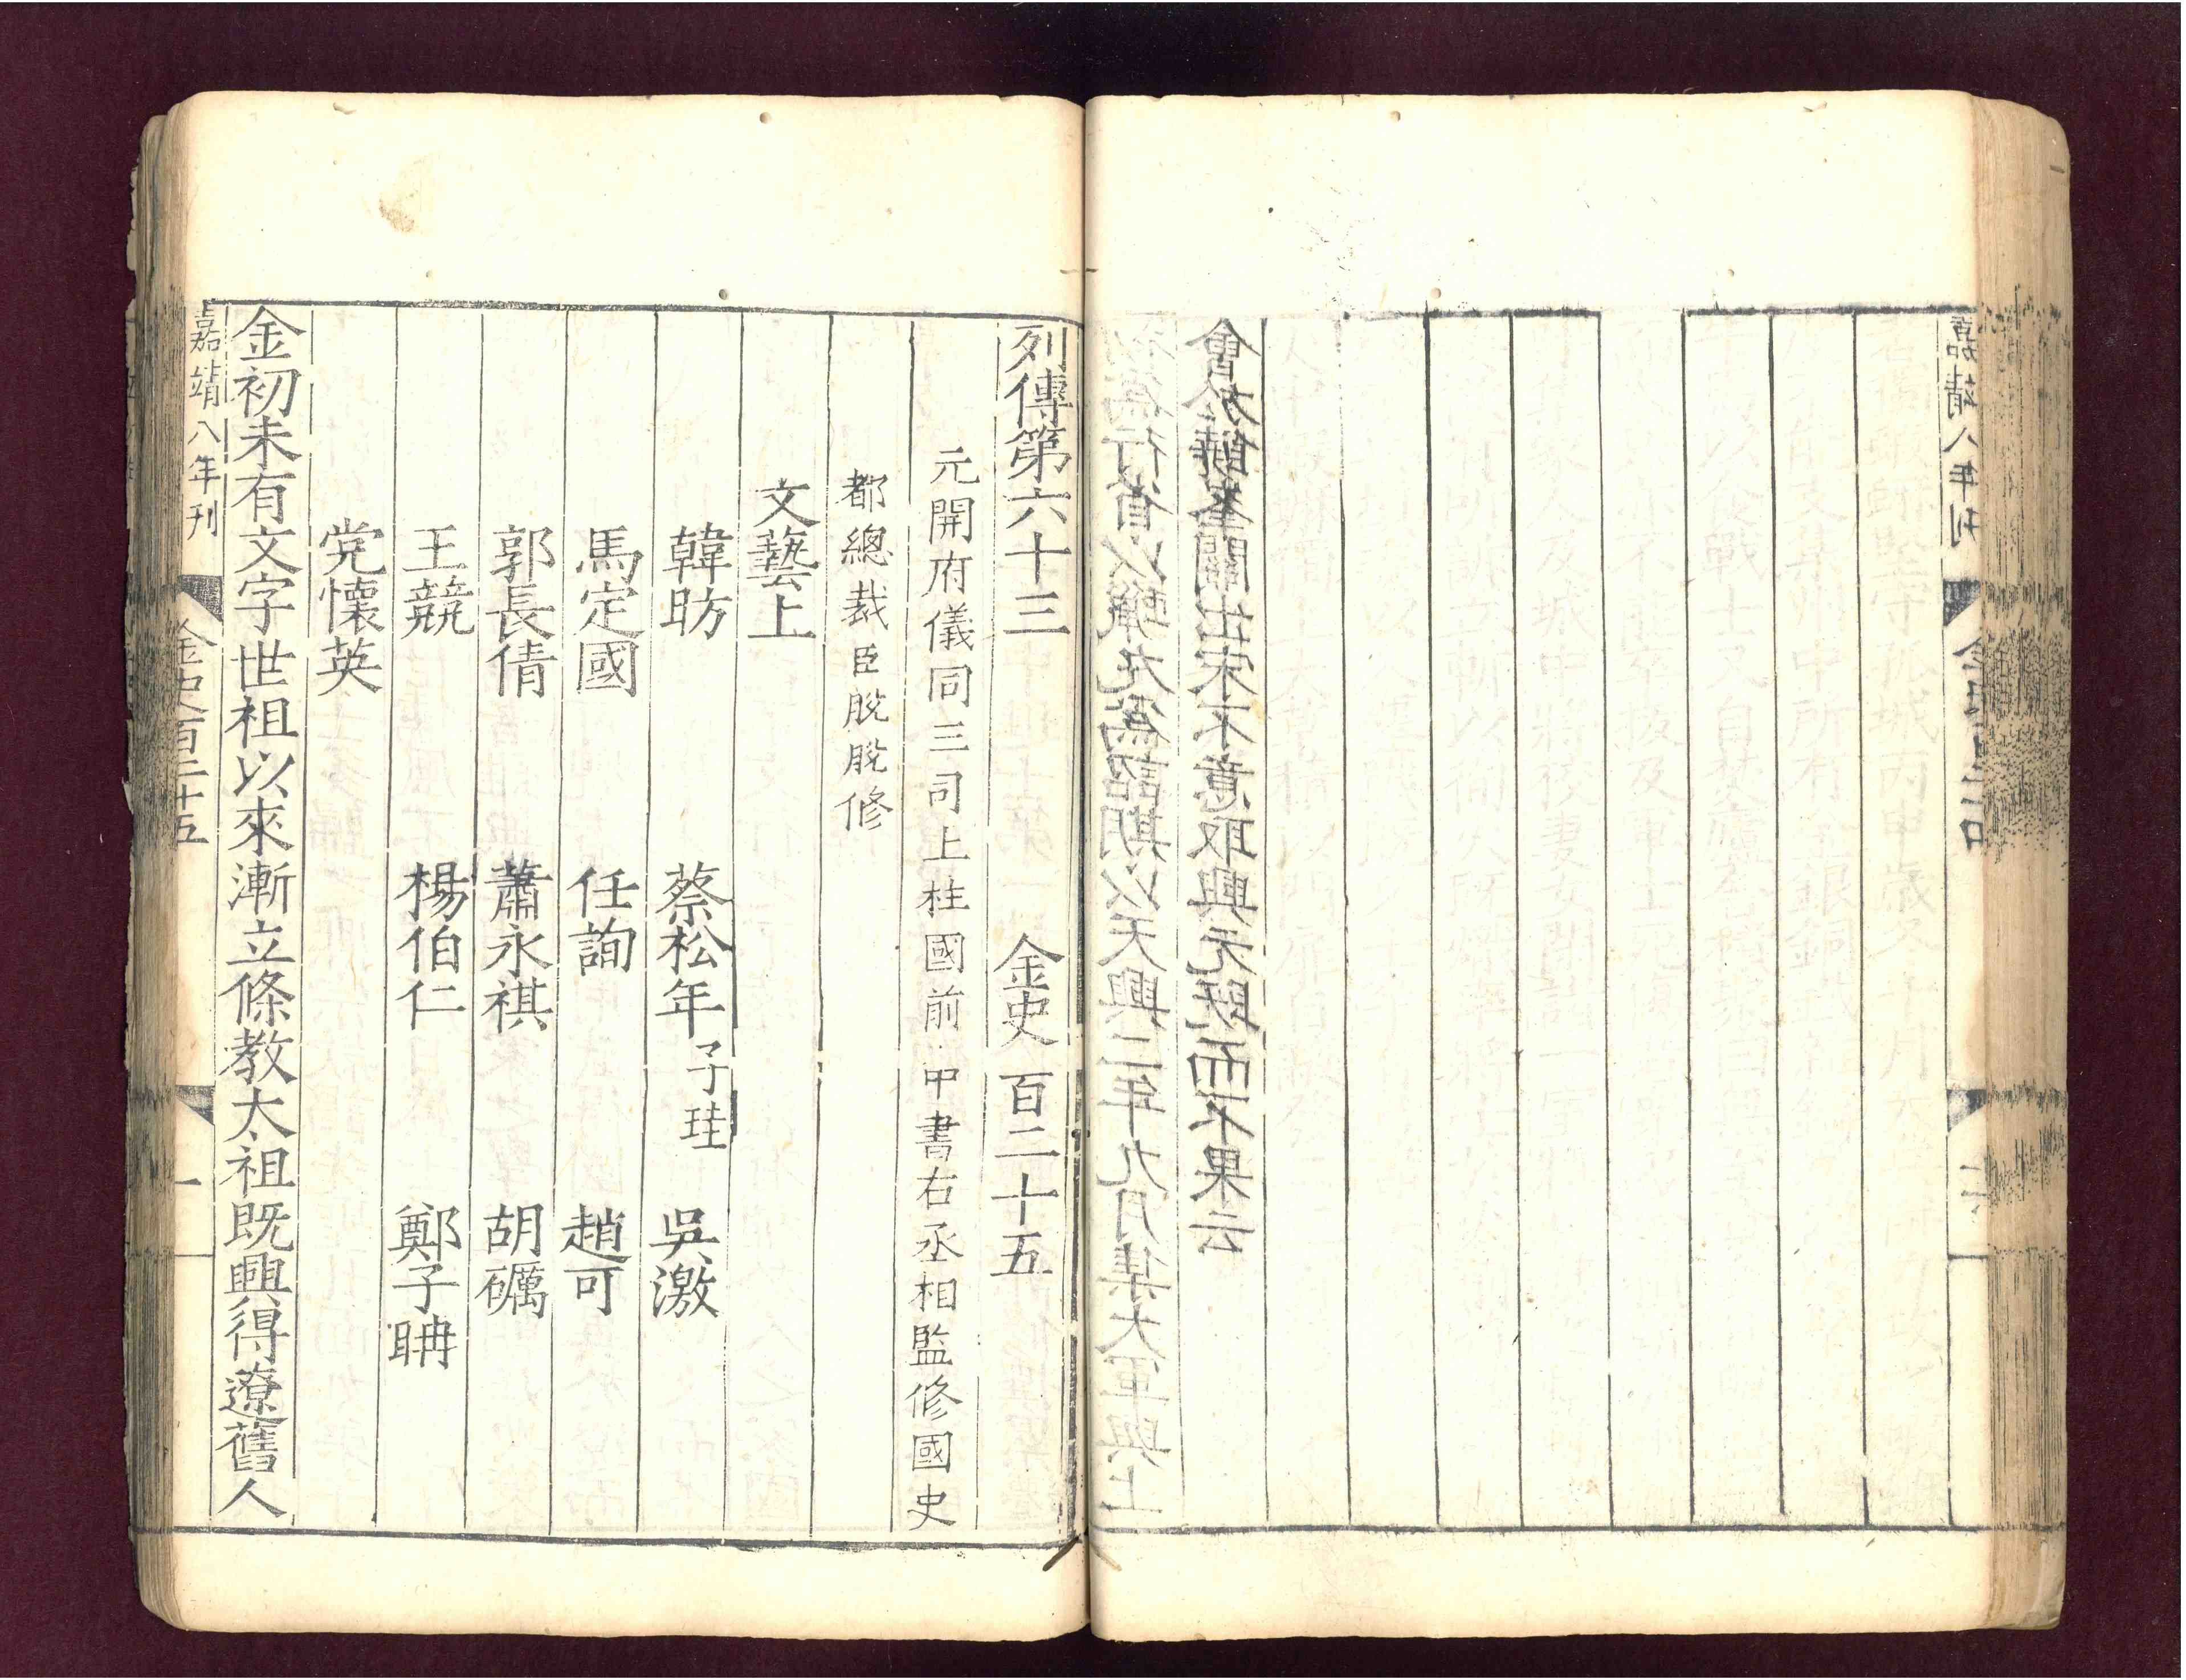 嘉靖八年刊
初為行省以蠟丸為詔期以天興二年九月集大軍與上
會於饒峯關出宋不意取興元既而不果云
列傳第六十三 金史 百二十五
元開府儀同三司上柱國前中書右丞相監修國史
都總裁臣脫脫修
文藝上
韓昉 蔡松年 子珪 吳激
馬定國 任詢 趙可
郭長倩 蕭永祺 胡礪
王競 楊伯仁 鄭子聃
党懷英
金初未有文字世祖以來漸立條教太祖既興得遼舊人
嘉靖八年刊 金史百二十五 一